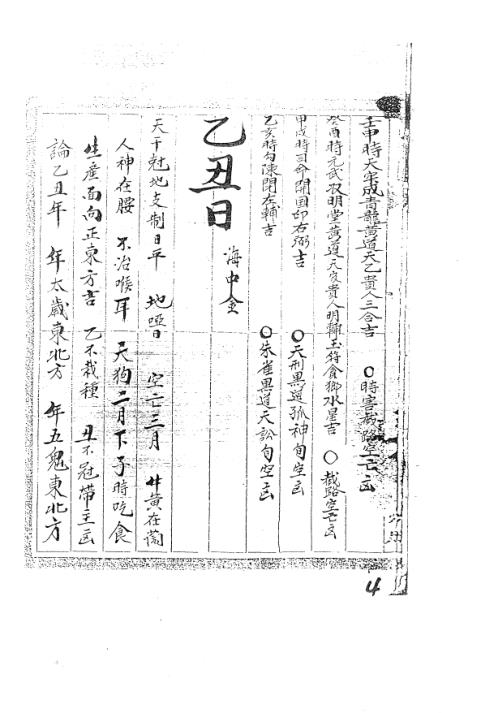 壬申時天牢成青龍黃道天乙貴人三合吉 〇時害截路空亡凶
癸酉時元武双明堂黃道天官貴人明輔玉符食祿水星吉 〇截路空亡凶
甲戌時司命開国印右弼吉 〇天刑黑道孤神旬空凶
乙亥時勾陳閉左輔吉 〇朱雀黑道天訟旬空凶
乙丑日 海中金
天干尅地支制日平 地啞日 空亡三月 廿黃在
人神在腰 不治喉耳 天狗二月下子時吃食
生產面向正東方吉 乙不栽種 丑不冠帶主凶
論乙丑年 年太歲東北方 年五鬼東北方
4